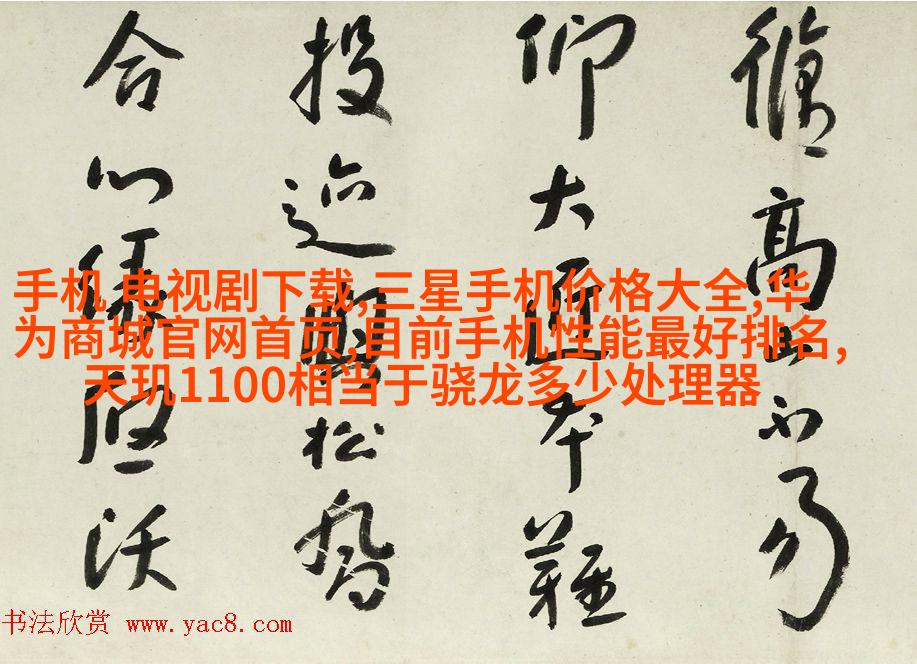 高山不易
仰大本難
投迹松
合沃
手机 电视剧下载,三星手机价格大全,华
为商城官网首页,目前手机性能最好排名,
天玑1100相当于骁龙多少处理器
书法欣赏 www.yac8.com